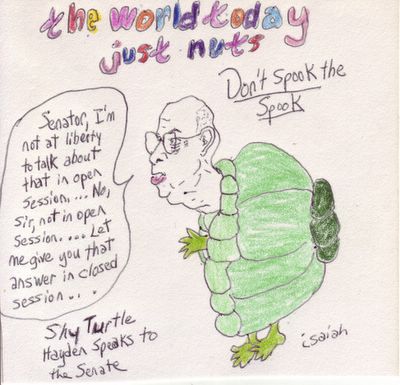 the world today
just nuts
Don't Spook the
Spook
Senator, I'm
not at liberty
to talk about
that in open
session.... No,
Sir, not in open
session.... Let
me give you that
answer in closed
session...
Shy Turtle
Hayden Speaks to
the Senate
isaiah